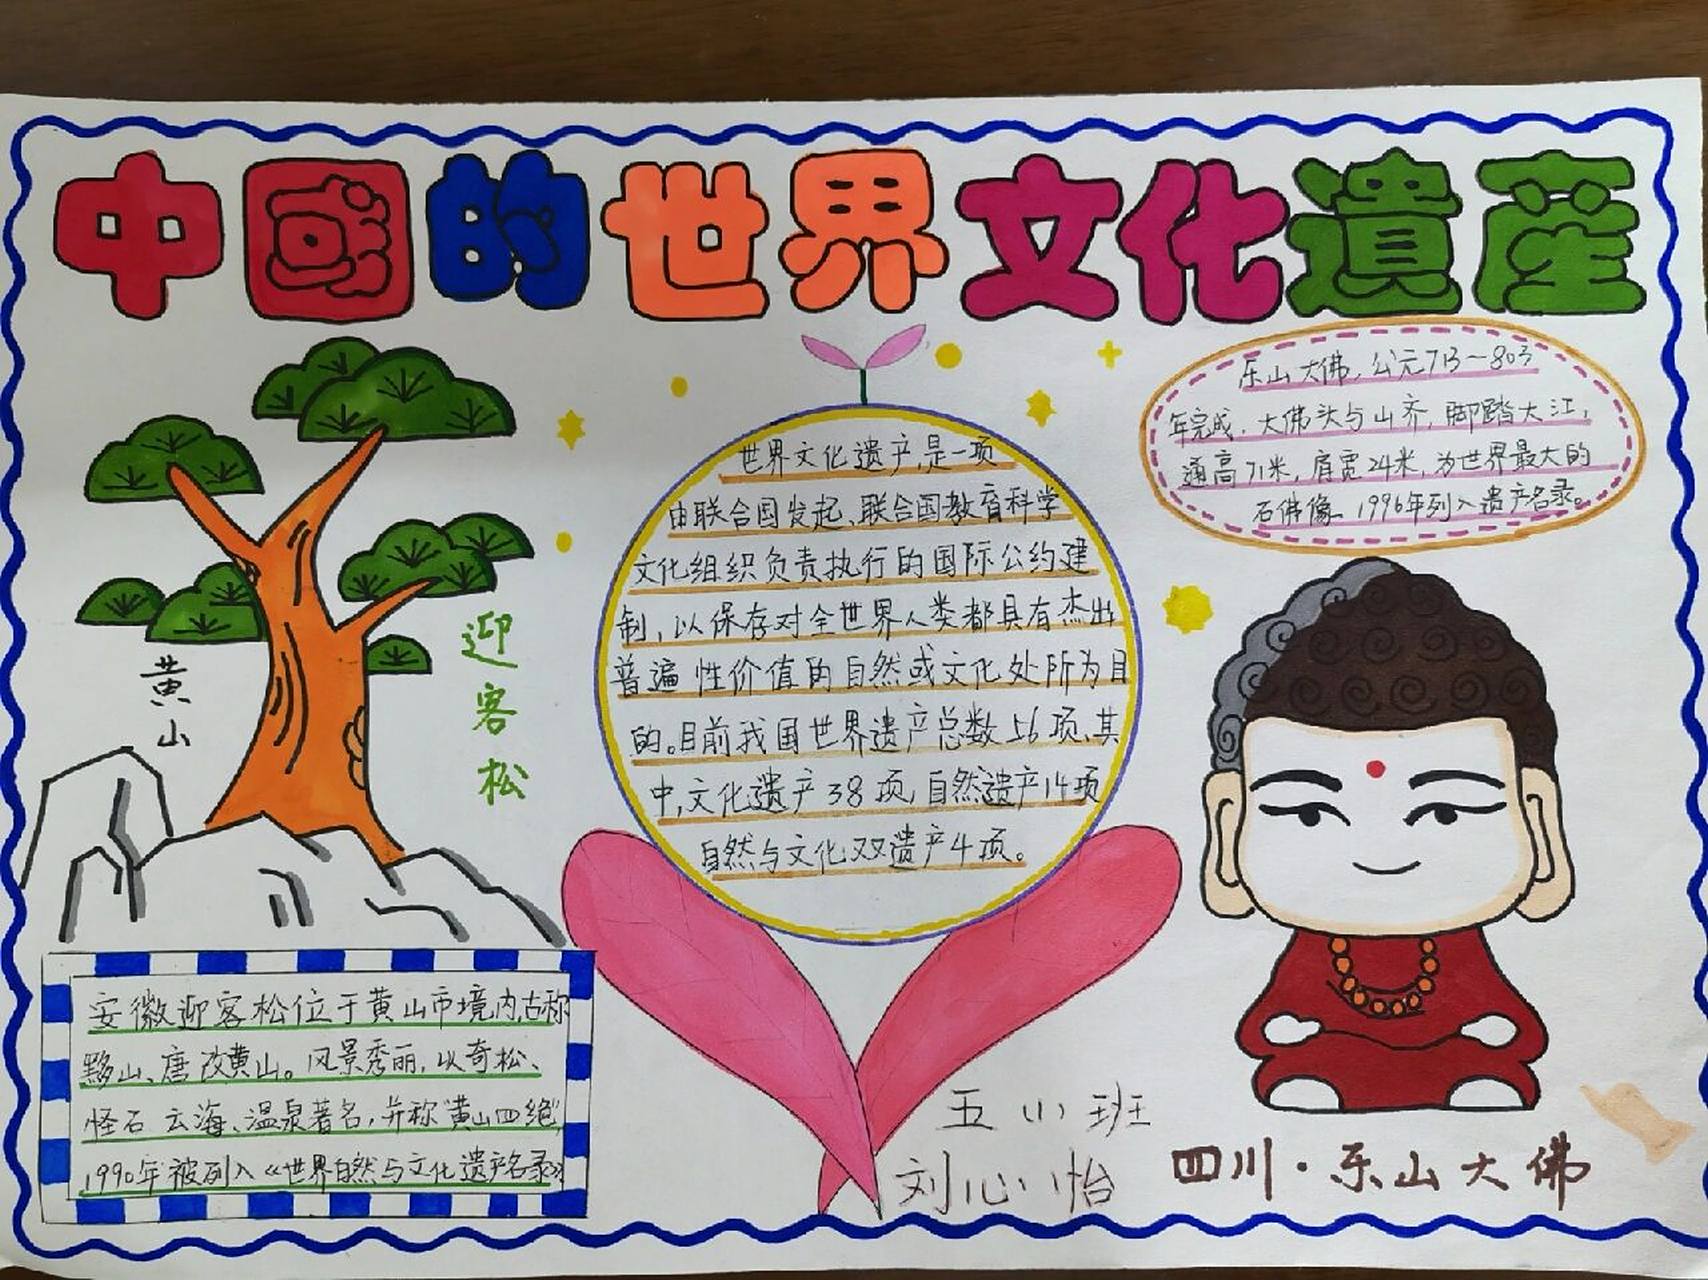 中國的世界文化遺産
乐山大佛，公元713－803
年完成．大佛头与山齐，脚踏大江，
通高71米，肩宽24米，为世界最大的
石佛像．1996年列入遗产名录。
世界文化遗产，是一项
由联合国发起、联合国教育科学
文化组织负责执行的国际公约建
制，以保存对全世界人类都具有杰出
普遍性价值的自然或文化处所为目
的。目前我国世界遗产总数56项、其
中，文化遗产38项，自然遗产14项
自然与文化双遗产4项。
黄山
迎客松
安徽迎客松位于黄山市境内，古称
黟山、唐改黄山。风景秀丽，以奇松、
怪石 云海、温泉著名，并称"黄山四绝"
1990年被列入《世界自然与文化遗产名录》
五小班
刘心怡
四川·乐山大佛